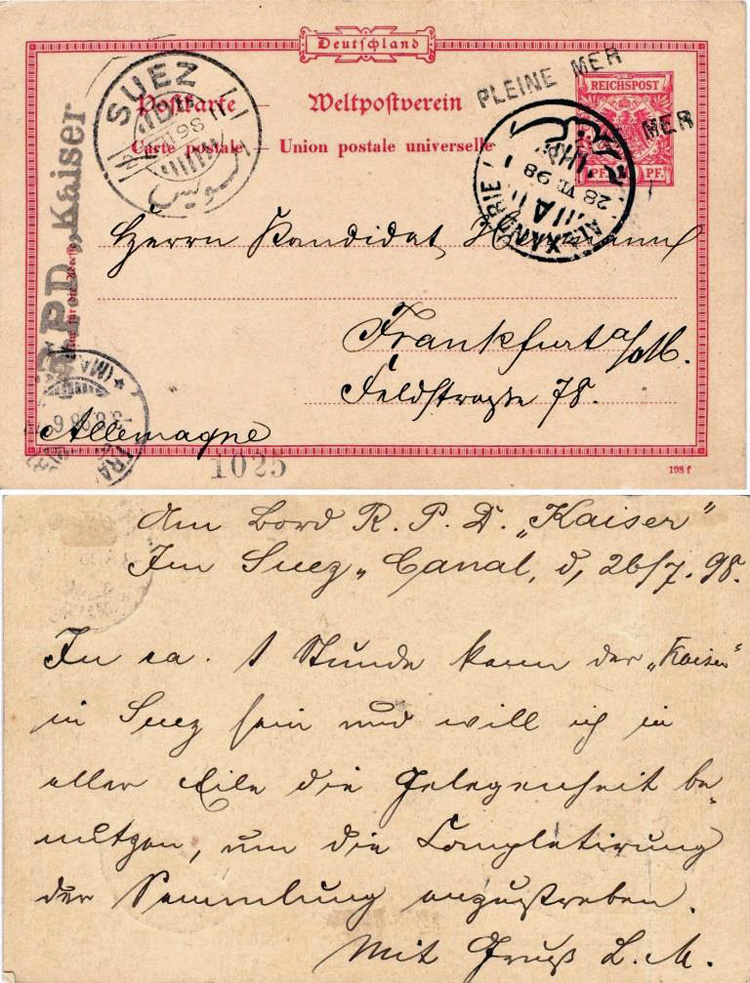 Deutschland
Postkarte — Weltpostverein
Carte postale — Union postale universelle
REICHSPOST
PF. PF.
PLEINE MER
MER
SUEZ
ALEXANDRIE
28 VII 98
R.P.D. „Kaiser
Herrn Kandidat Hermann
Frankfurt a/M.
Feldstraße 78.
Allemagne
1025
198 f
Am Bord R. P. D. „Kaiser"
Im Suez-Canal, d, 26/7. 98.
In ca. 1 Stunde kann der „Kaiser"
in Suez sein und will ich in
aller Eile die Gelegenheit be-
nutzen, um die Completirung
der Sammlung anzustreben.
Mit Gruß L. M.